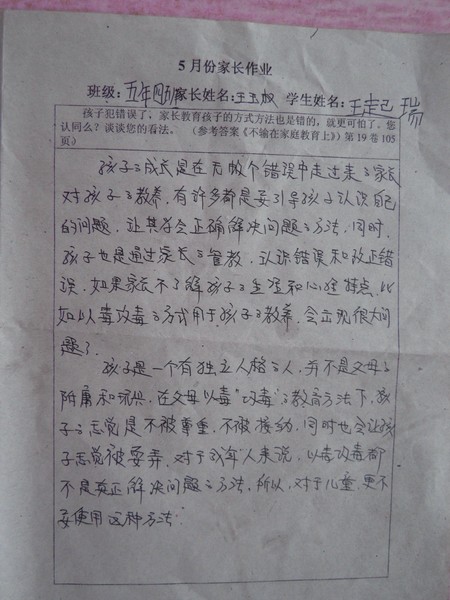 5月份家长作业
班级:五年四家长姓名:王玉 学生姓名:王 瑞
孩子犯错误了,家长教育孩子的方式方法也是错的,就更可怕了。您
认同么?谈谈您的看法。(参考答案《不输在家庭教育上》)第19卷105
页)
孩子之成长是在无数个错误中走过来之家长
对孩子之教养,有许多都是要引导孩子认识自己
的问题,让其学会正确解决问题之方法,同时,
孩子也是通过家长之管教,认识错误和改正错
误,如果家长不了解孩子之生理和心理特点,比
如以毒攻毒之方式用于孩子之教养,会出现很大问
题了。
孩子是一个有独立人格之人,并不是父母之
附庸和 在父母以毒“攻毒”之教育方法下,孩
子之感觉是不被尊重,不被接纳,同时也会让孩
子感觉被耍弄,对于成年人来说,以毒攻毒都
不是真正解决问题之方法,所以,对于儿童,更不
要使用这种方法。